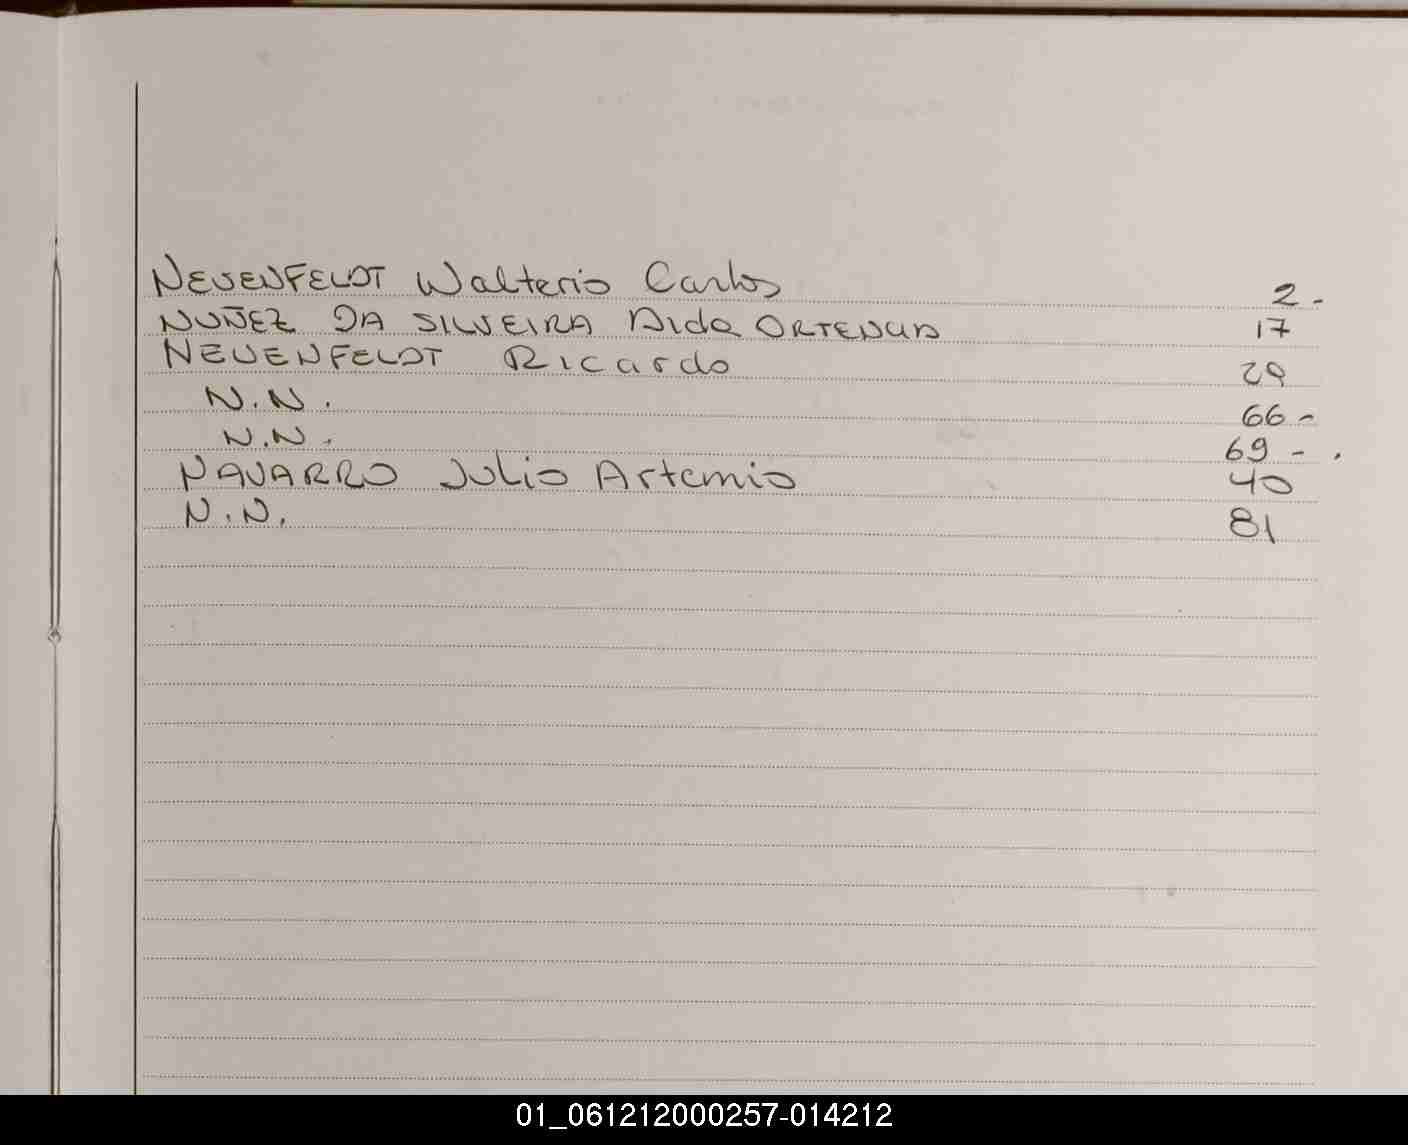 NEUENFELDT Walterio Carlos 2 -
NUÑEZ DA SILVEIRA Aida 17
NEUENFELDT Ricardo 29
N.N. 66 -
N.N. 69 - .
NAVARRO Julio Artemio 40
N.N. 81
01_061212000257-014212